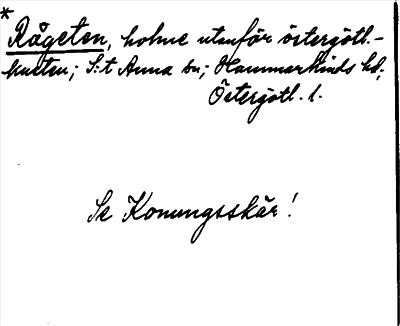 *
Rågeten, holme utanför östergötl.-
kusten; S:t Anna sn; Hammarkinds hd;
Östergötl. l.
Se Konungsskär!